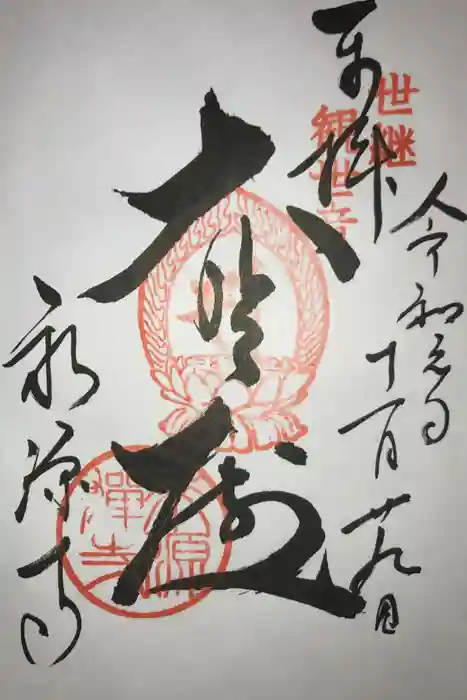 奉拝
世継
観世音
令和元年
十一月廿九日
大悲殿
永源寺
永源
禅寺